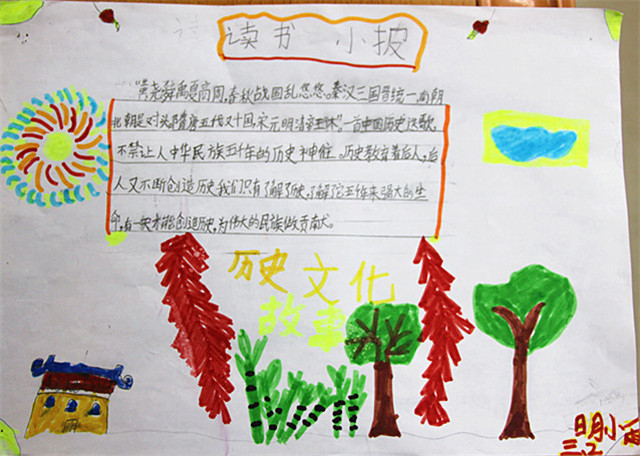 读书 小报
黄老舜禹夏商周,春秋战国乱悠悠。秦汉三国晋统一,南朝
北朝是对头。隋唐五代又十国,宋元明清帝王休”。一首中国历史
不禁让人中华民族五千年的历史神往。历史教育着后人,后
人又不断创造历史,我们只有了解了历史,了解它五千年来强大的生
命,有一天才能创造历史,为伟大的民族做贡献。
历史文化
故事
三.2